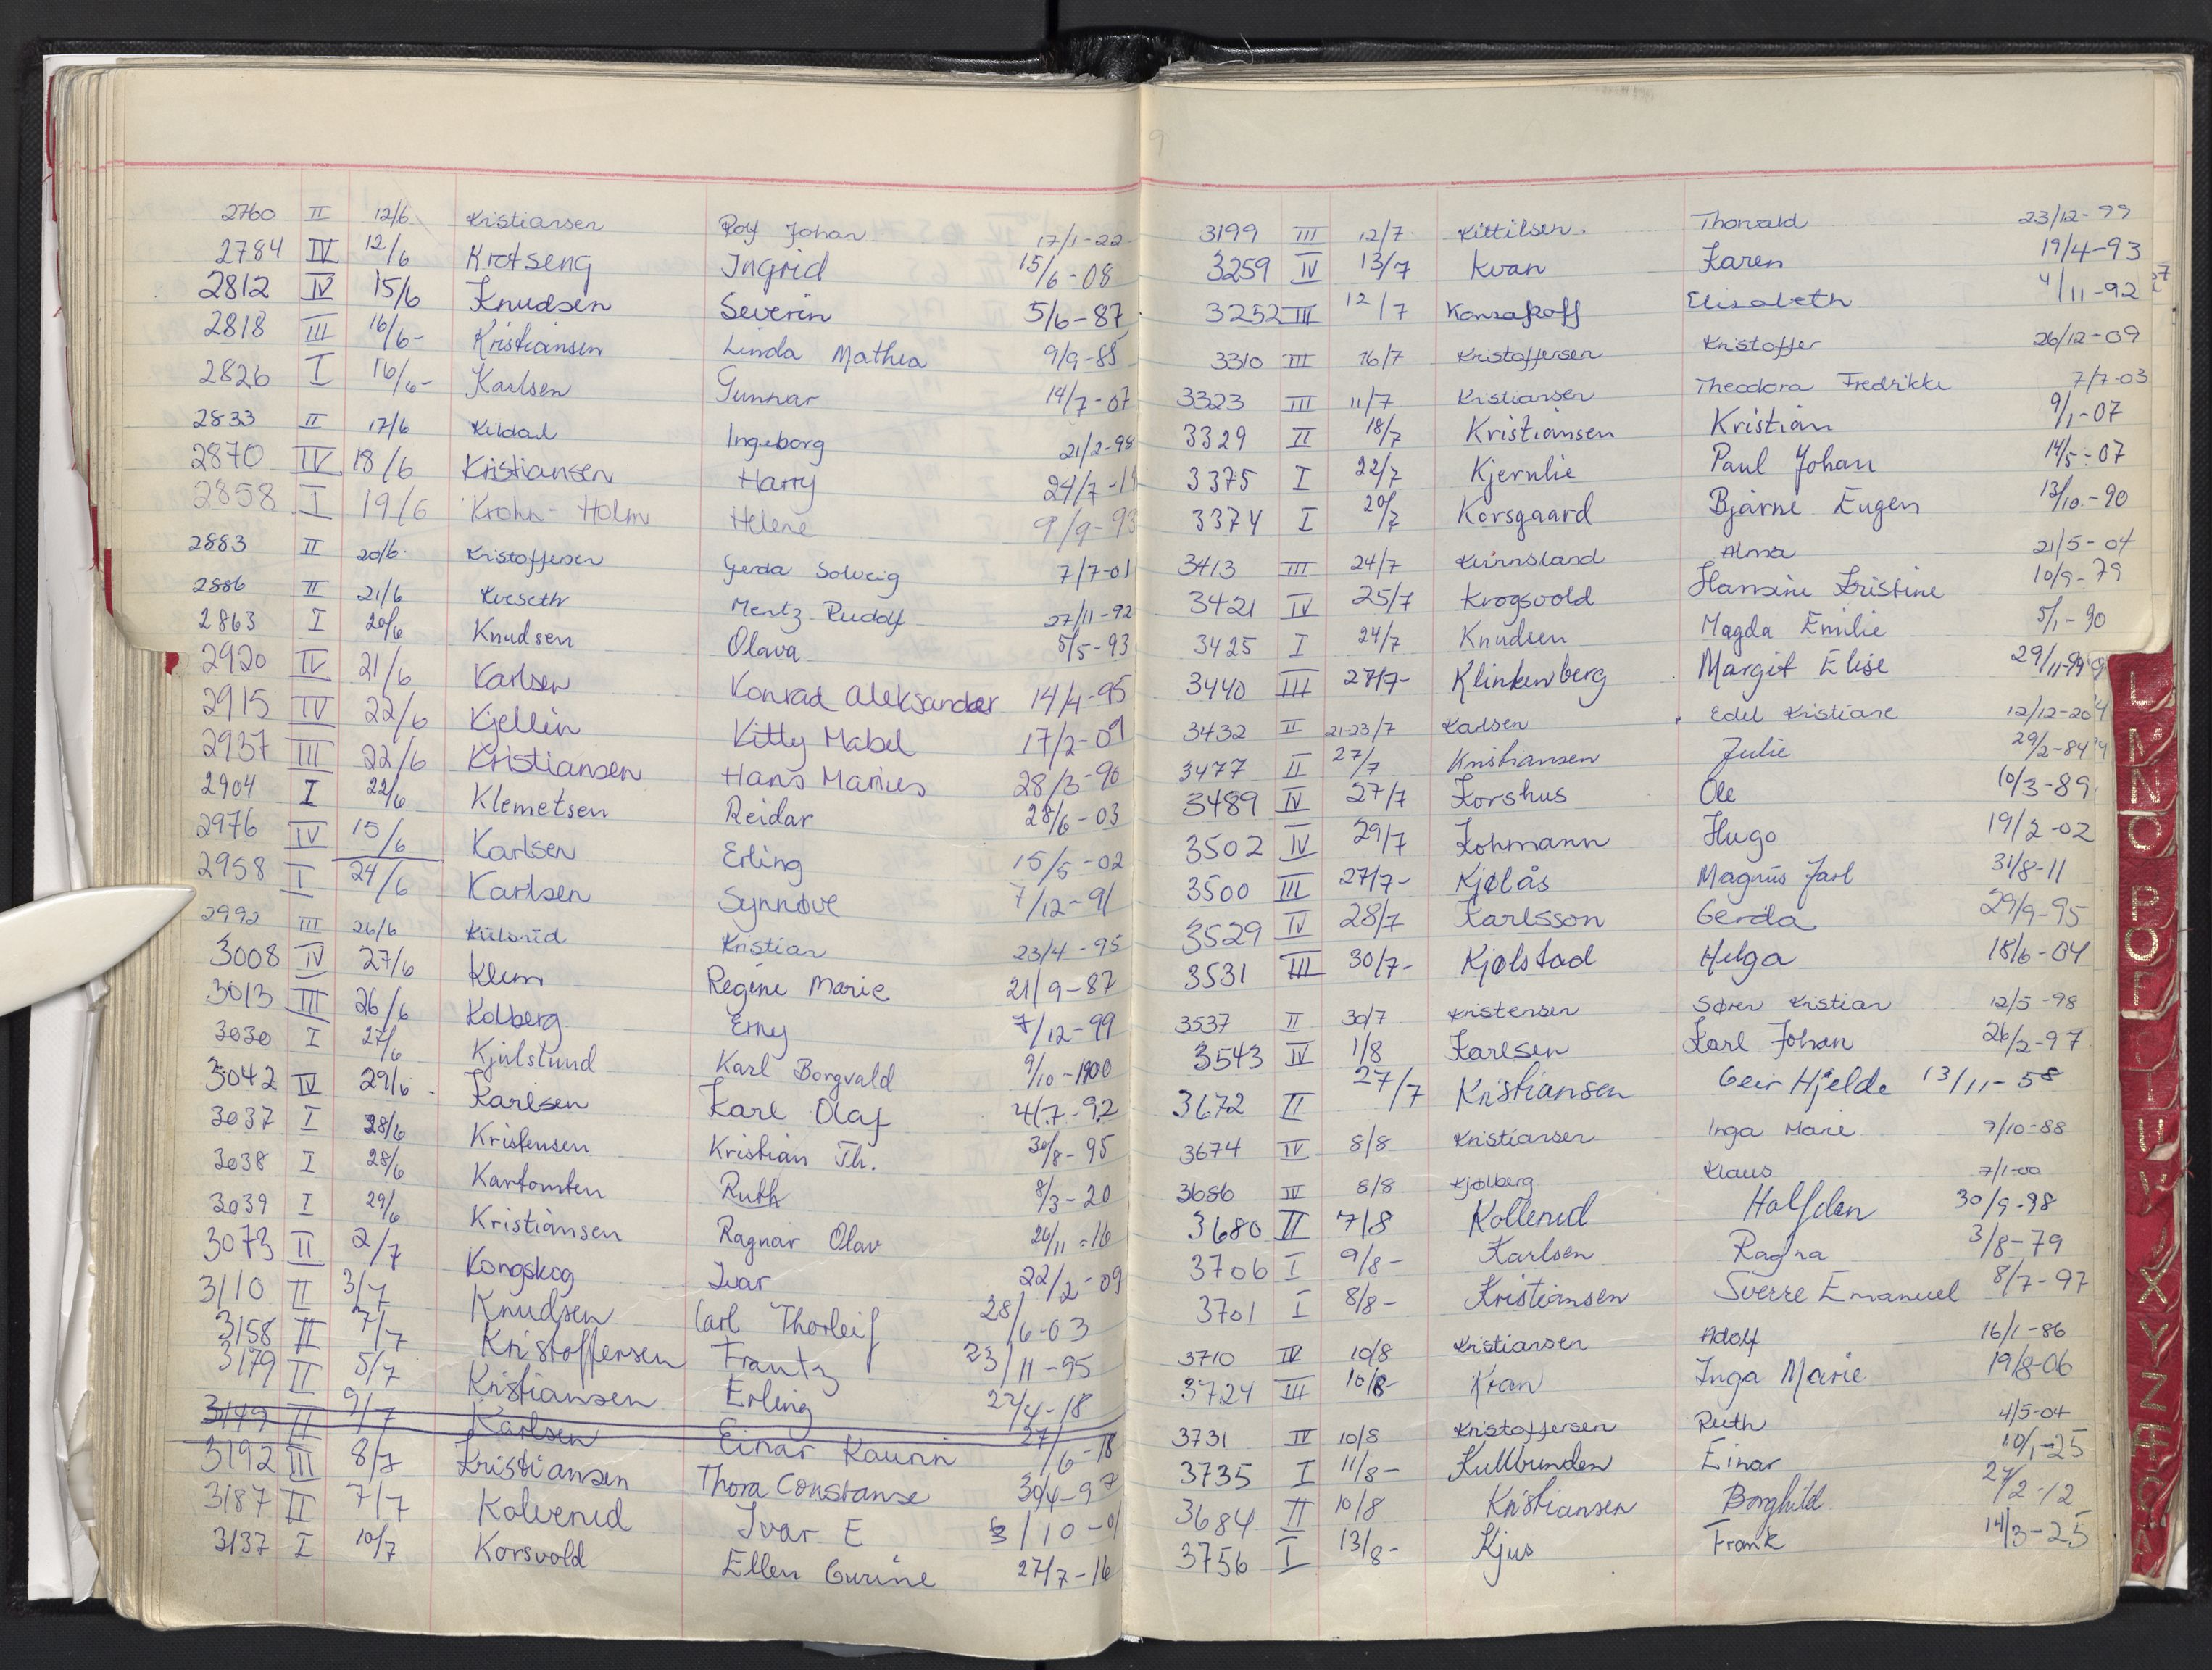 2760 II 12/6 Kristiansen Rolf Johan 17/1-22
2784 IV 12/6 Krotseng Ingrid 15/6-08
2812 IV 15/6 Knudsen Severin 5/6-87
2818 III 16/6- Kristiansen Linda Mathea 9/9-85
2826 I 16/6- Karlsen Gunnar 14/7-07
2833 II 17/6 Kildal Ingeborg 21/2-98
2870 IV 18/6 Kristiansen Harry 24/7-
2858 I 19/6 Krohn-Holm Helene 9/9-93
2883 II 20/6 Kristoffersen Gerda Solveig 7/7-01
2886 II 21/6 Kveseth Mentz Rudolf 27/11-92
2863 I 20/6 Knudsen Olava 5/5-93
2920 IV 21/6 Karlsen Konrad Aleksander 14/4-95
2915 IV 22/6 Kjellin Kitty Mabel 17/2-09
2937 III 22/6 Kristiansen Hans Marius 28/3-90
2904 I 22/6 Klemetsen Reidar 28/6-03
2976 IV 15/6 Karlsen Erling 15/5-02
2958 I 24/6 Karlsen Synnøve 7/12-91
2992 III 26/6 Kristian 23/4-95
3008 IV 27/6 Klem Regine Marie 21/9-87
3013 III 26/6 Kolberg Erny 7/12-99
3030 I 27/6 Kjulstund Karl Borgvald 9/10-1900
3042 IV 29/6 Karlsen Karl Olaf 4/7-92
3037 I 28/6 Kristensen Kristian Th. 30/8-95
3038 I 28/6 Kartomten Ruth 8/3-20
3039 I 29/6 Kristiansen Ragnar Olav 26/11-16
3073 II 2/7 Kongskog Ivar 22/2-09
3110 II 3/7 Knudsen Carl Thorleif 28/6-03
3158 II 7/7 Kristoffersen Frantz 23/11-95
3179 II 5/7 Kristiansen Erling 27/4-18
3149 II 9/7 Karlsen Einar Kaurin 27/6-18
3192 III 8/7 Kristiansen Thora Constanse 30/4-97
3187 II 7/7 Kolverud Ivar E 3/10-01
3137 I 10/7 Korsvold Ellen Gurine 27/7-16
3199 III 12/7 Kittilsen. Thorvald 23/12-99
3259 IV 13/7 Kvan Karen 19/4-93
3252 III 12/7 Elisabeth 4/11-92
3310 III 16/7 Kristoffersen Kristoffer 26/12-09
3323 III 11/7 Kristiansen Theodora Fredrikke 7/7-03
3329 II 18/7 Kristiansen Kristian 9/1-07
3375 I 22/7 Kjernlie Paul Johan 14/5-07
3374 I 20/7 Korsgaard Bjarne Eugen 13/10-90
3413 III 24/7 Kvinnsland Alma 21/5-04
3421 IV 25/7 Krogsvold Hansine Kristine 10/9-79
3425 I 24/7 Knudsen Magda Emilie 5/1-90
3440 III 27/7- Klinkenberg Margit Elise 29/11-99
3432 II 21-23/7 Karlsen Edel Kristiane 12/12-20
3477 II 27/7 Kristiansen Julie 29/2-84
3489 IV 27/7 Korshus Ole 10/3-89
3502 IV 29/7 Kohmann Hugo 19/2-02
3500 III 27/7- Kjølås Magnus Jarl 31/8-11
3529 IV 28/7 Karlsson Gerda 29/9-95
3531 III 30/7- Kjølstad Helga 18/6-04
3537 II 30/7 Kristensen Søren Kristian 12/5-98
3543 IV 1/8 Karlsen Karl Johan 26/2-97
3672 II 27/7 Kristiansen Geir Hjelde 13/11-58
3674 IV 8/8 Kristiansen Inga Marie 9/10-88
3686 IV 8/8 Kjølberg Klaus 7/1-00
3680 II 7/8 Kollerud Halfdan 30/9-98
3706 I 9/8- Karlsen Ragna 3/8-79
3701 I 8/8- Kristiansen Sverre Emanuel 8/7-97
3710 IV 10/8 Kristiansen Adolf 16/1-86
3724 III 10/8- Kran Inga Marie 19/8-06
3731 IV 10/8 Kristoffersen Ruth 4/5-04
3735 I 11/8- Kullbunden Einar 10/1-25
3684 II 10/8 Kristiansen Borghild 27/2-12
3756 I 13/8- Kjus Frank 14/3-25
L
M
N
O
P